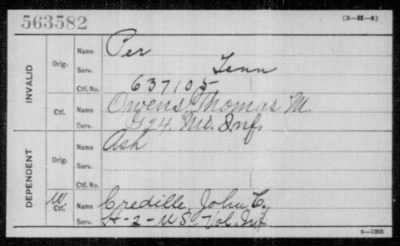 563582
(3-H-4)
INVALID
Orig.
Name Per
Serv. Tenn
Ctf. No. 637105
Ctf.
Name Owens, Thomas M.
Serv. Inf.
DEPENDENT
Orig.
Name Ash
Serv.
Ctf. No.
W
Ctf.
Name Credille, John C.
Serv. H-2-U.S. Vol. Inf.